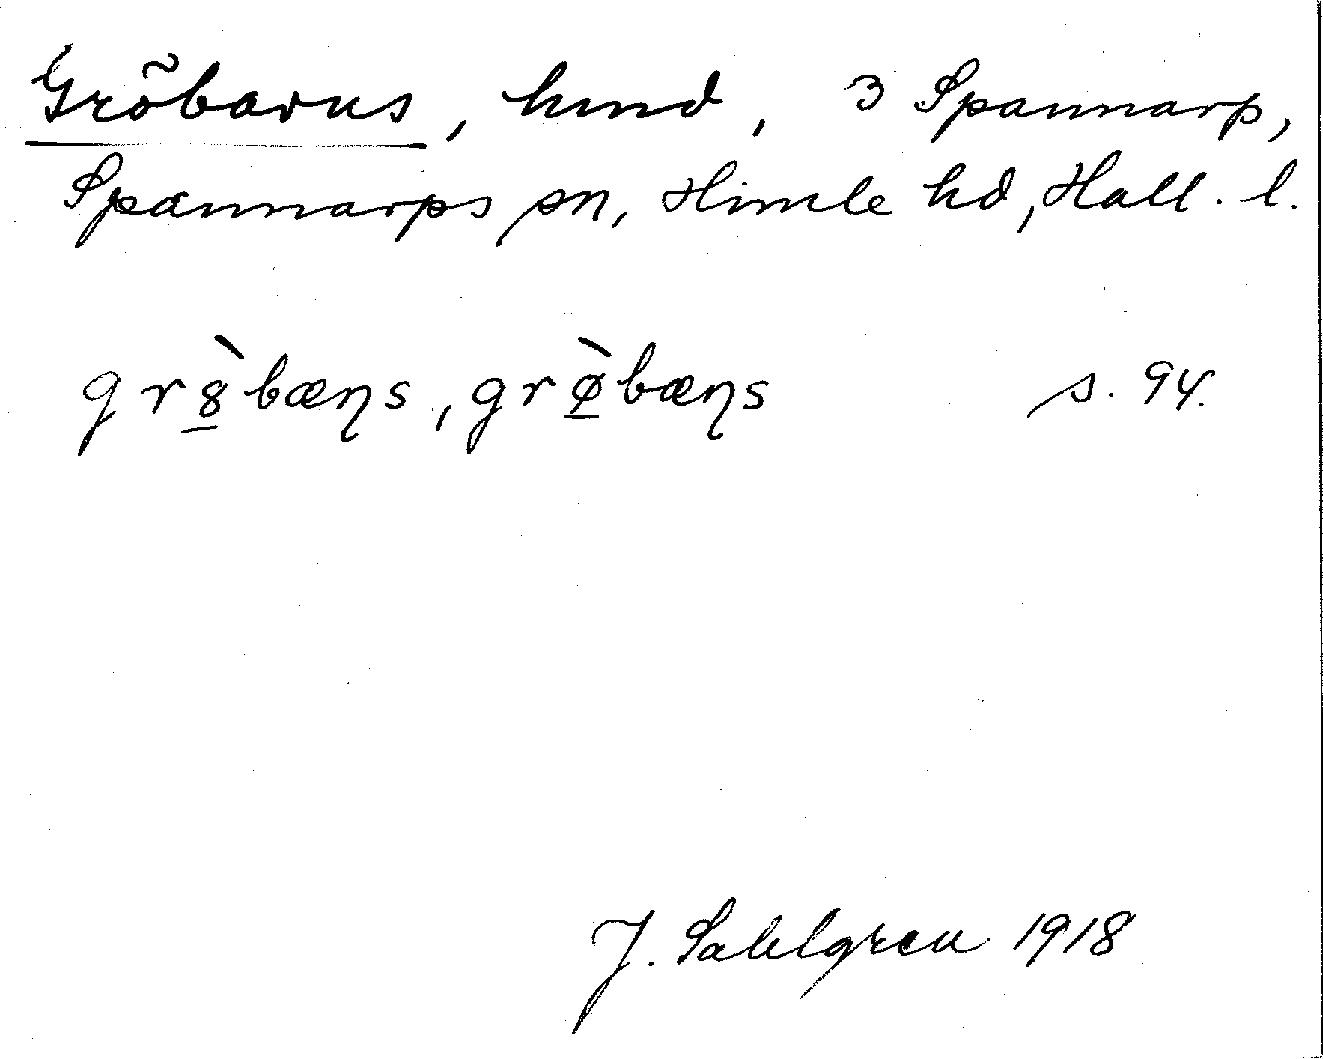 Gröbarns, hmd, 3 Spannarp,
Spannarps sn, Himle hd, Hall. l.
gr8̲̀bæɳs, grø̲̀bæɳs s. 94.
J. Sahlgren 1918